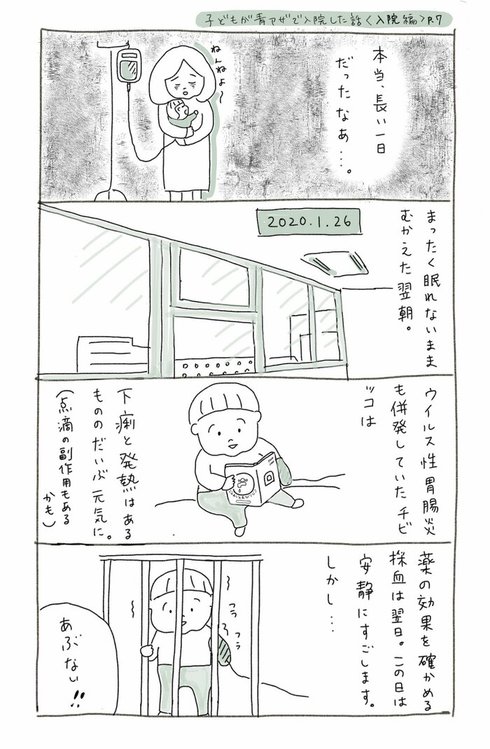 子どもが青アザで入院した話〈入院編〉P.7
本当、長い一日
だったなぁ…。
ねんねよ〜
2020.1.26
まったく眠れないまま
むかえた翌朝。
ウイルス性胃腸炎
も併発していたチビ
ッコは
下痢と発熱はある
もののだいぶ元気に。
(点滴の副作用もある
かも)
薬の効果を確かめる
採血は翌日。この日は
安静にすごします。
しかし…
フラ
フラ
あぶない!!